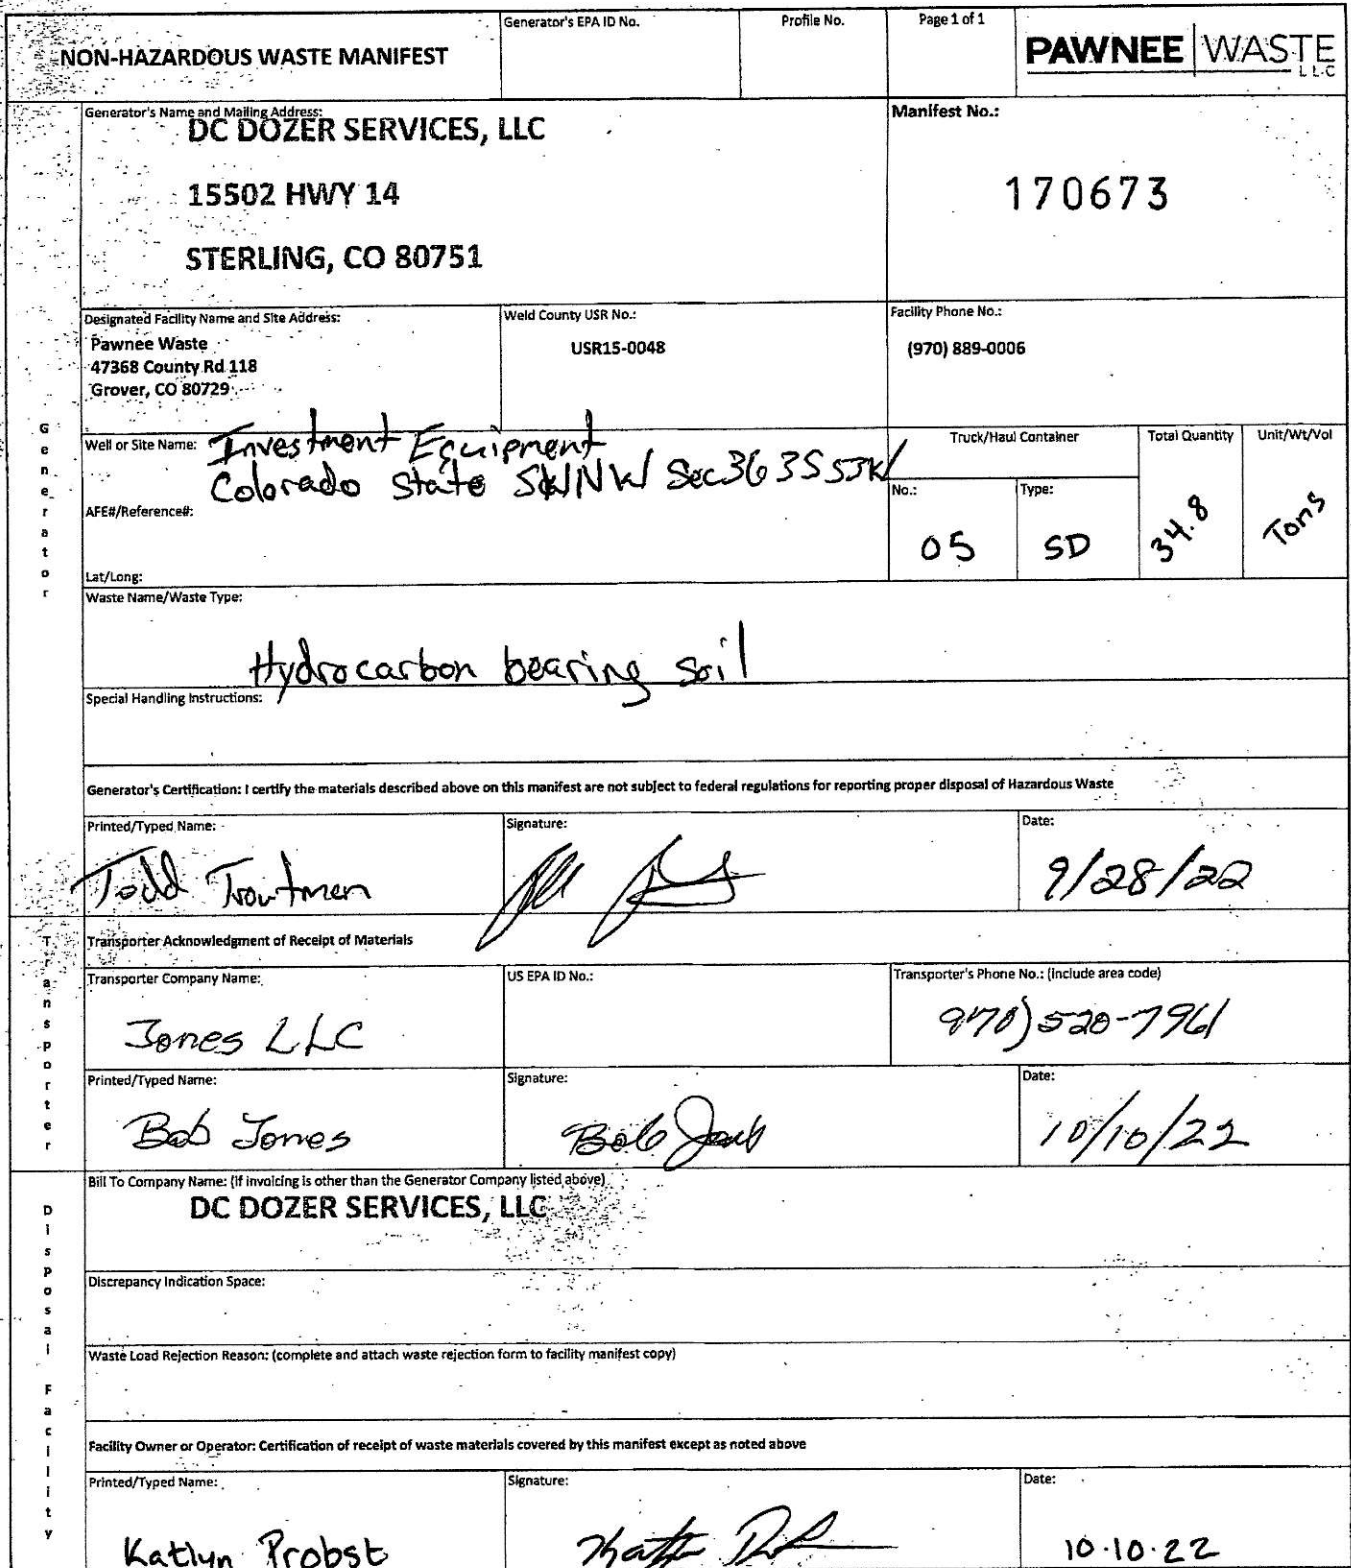 NON-HAZARDOUS WASTE MANIFEST
Generator's EPA ID No.
Profile No.
Page 1 of 1
PAWNEE WASTE
LLC
Generator's Name and Mailing Address:
DC DOZER SERVICES, LLC
15502 HWY 14
STERLING, CO 80751
Manifest No.:
170673
Designated Facility Name and Site Address:
Pawnee Waste
47368 County Rd 118
Grover, CO 80729
Weld County USR No.:
USR15-0048
Facility Phone No.:
(970) 889-0006
Generator
Well or Site Name: Investment Equipment
Colorado State SWNW Sec36 3S 53W
AFE#/Reference#:
Lat/Long:
Truck/Haul Container
No.:
05
Type:
SD
Total Quantity
34.8
Unit/Wt/Vol
Tons
Waste Name/Waste Type:
Hydrocarbon bearing soil
Special Handling Instructions:
Generator's Certification: I certify the materials described above on this manifest are not subject to federal regulations for reporting proper disposal of Hazardous Waste
Printed/Typed Name:
Todd Troutman
Signature:
Date:
9/28/22
Transporter
Transporter Acknowledgment of Receipt of Materials
Transporter Company Name:
Jones LLC
US EPA ID No.:
Transporter's Phone No.: (include area code)
970) 520-7961
Printed/Typed Name:
Bob Jones
Signature:
Bob Jones
Date:
10/10/22
Disposal Facility
Bill To Company Name: (if invoicing is other than the Generator Company listed above)
DC DOZER SERVICES, LLC
Discrepancy Indication Space:
Waste Load Rejection Reason: (complete and attach waste rejection form to facility manifest copy)
Facility Owner or Operator: Certification of receipt of waste materials covered by this manifest except as noted above
Printed/Typed Name:
Katlyn Probst
Signature:
Date:
10.10.22